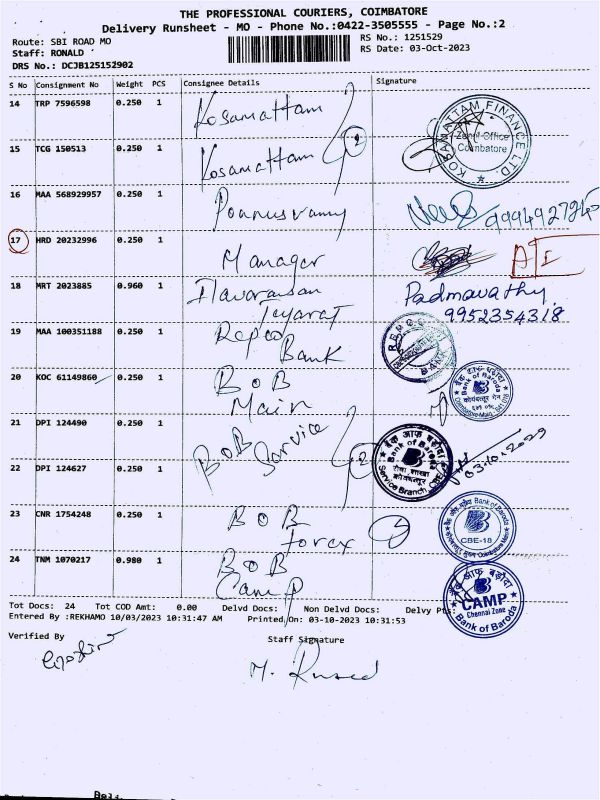 THE PROFESSIONAL COURIERS, COIMBATORE
Delivery Runsheet - MO - Phone No.:0422-3505555 - Page No.:2
Route: SBI ROAD MO
RS No.: 1251529
Staff: RONALD
RS Date: 03-Oct-2023
DRS No.: DCJB125152902
S No Consignment No Weight PCS Consignee Details Signature
14 TRP 7596598 0.250 1 Kosamattam
KOSAMATTAM FINANCE LTD.
Zonal Office
Coimbatore
15 TCG 150513 0.250 1 Kosamattam 2
16 MAA 568929957 0.250 1 Ponnusvamy
17 HRD 20232996 0.250 1 Manager
18 MRT 2023885 0.960 1
Padmavathy
9952354318
19 MAA 100351188 0.250 1 Repco
Bank
20 KOC 61149860 0.250 1 BOB
Main
बैंक ऑफ़ बड़ौदा
Bank of Baroda
21 DPI 124490 0.250 1 BOB Service
बैंक ऑफ़ बड़ौदा
Bank of Baroda
सेवा शाखा
कोयंबत्तूर
Service Branch, CBE
03.10.2023
22 DPI 124627 0.250 1 2
23 CNR 1754248 0.250 1 BOB
forex
Bank of Baroda
CBE-18
24 TNM 1070217 0.980 1 BOB
Camp
बैंक ऑफ़ बड़ौदा
CAMP
Chennai Zone
Bank of Baroda
Tot Docs: 24 Tot COD Amt: 0.00 Delvd Docs: Non Delvd Docs: Delvy Pt
Entered By :REKHAMO 10/03/2023 10:31:47 AM Printed On: 03-10-2023 10:31:53
Verified By
Staff Signature